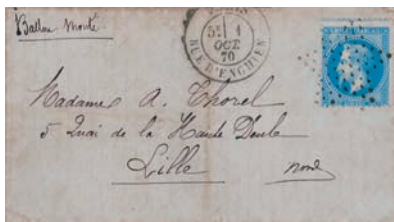 Ballon Monté
5E 1
OCT
70
RUE D'ENGHIEN
Madame A. Thorel
5 Quai de la Haute Deule
Lille
Nord